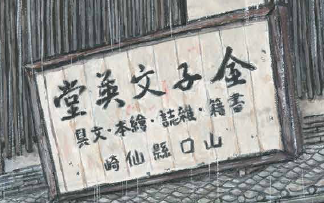 金子文英堂
書籍・雑誌・繪本・文具
山口縣仙崎